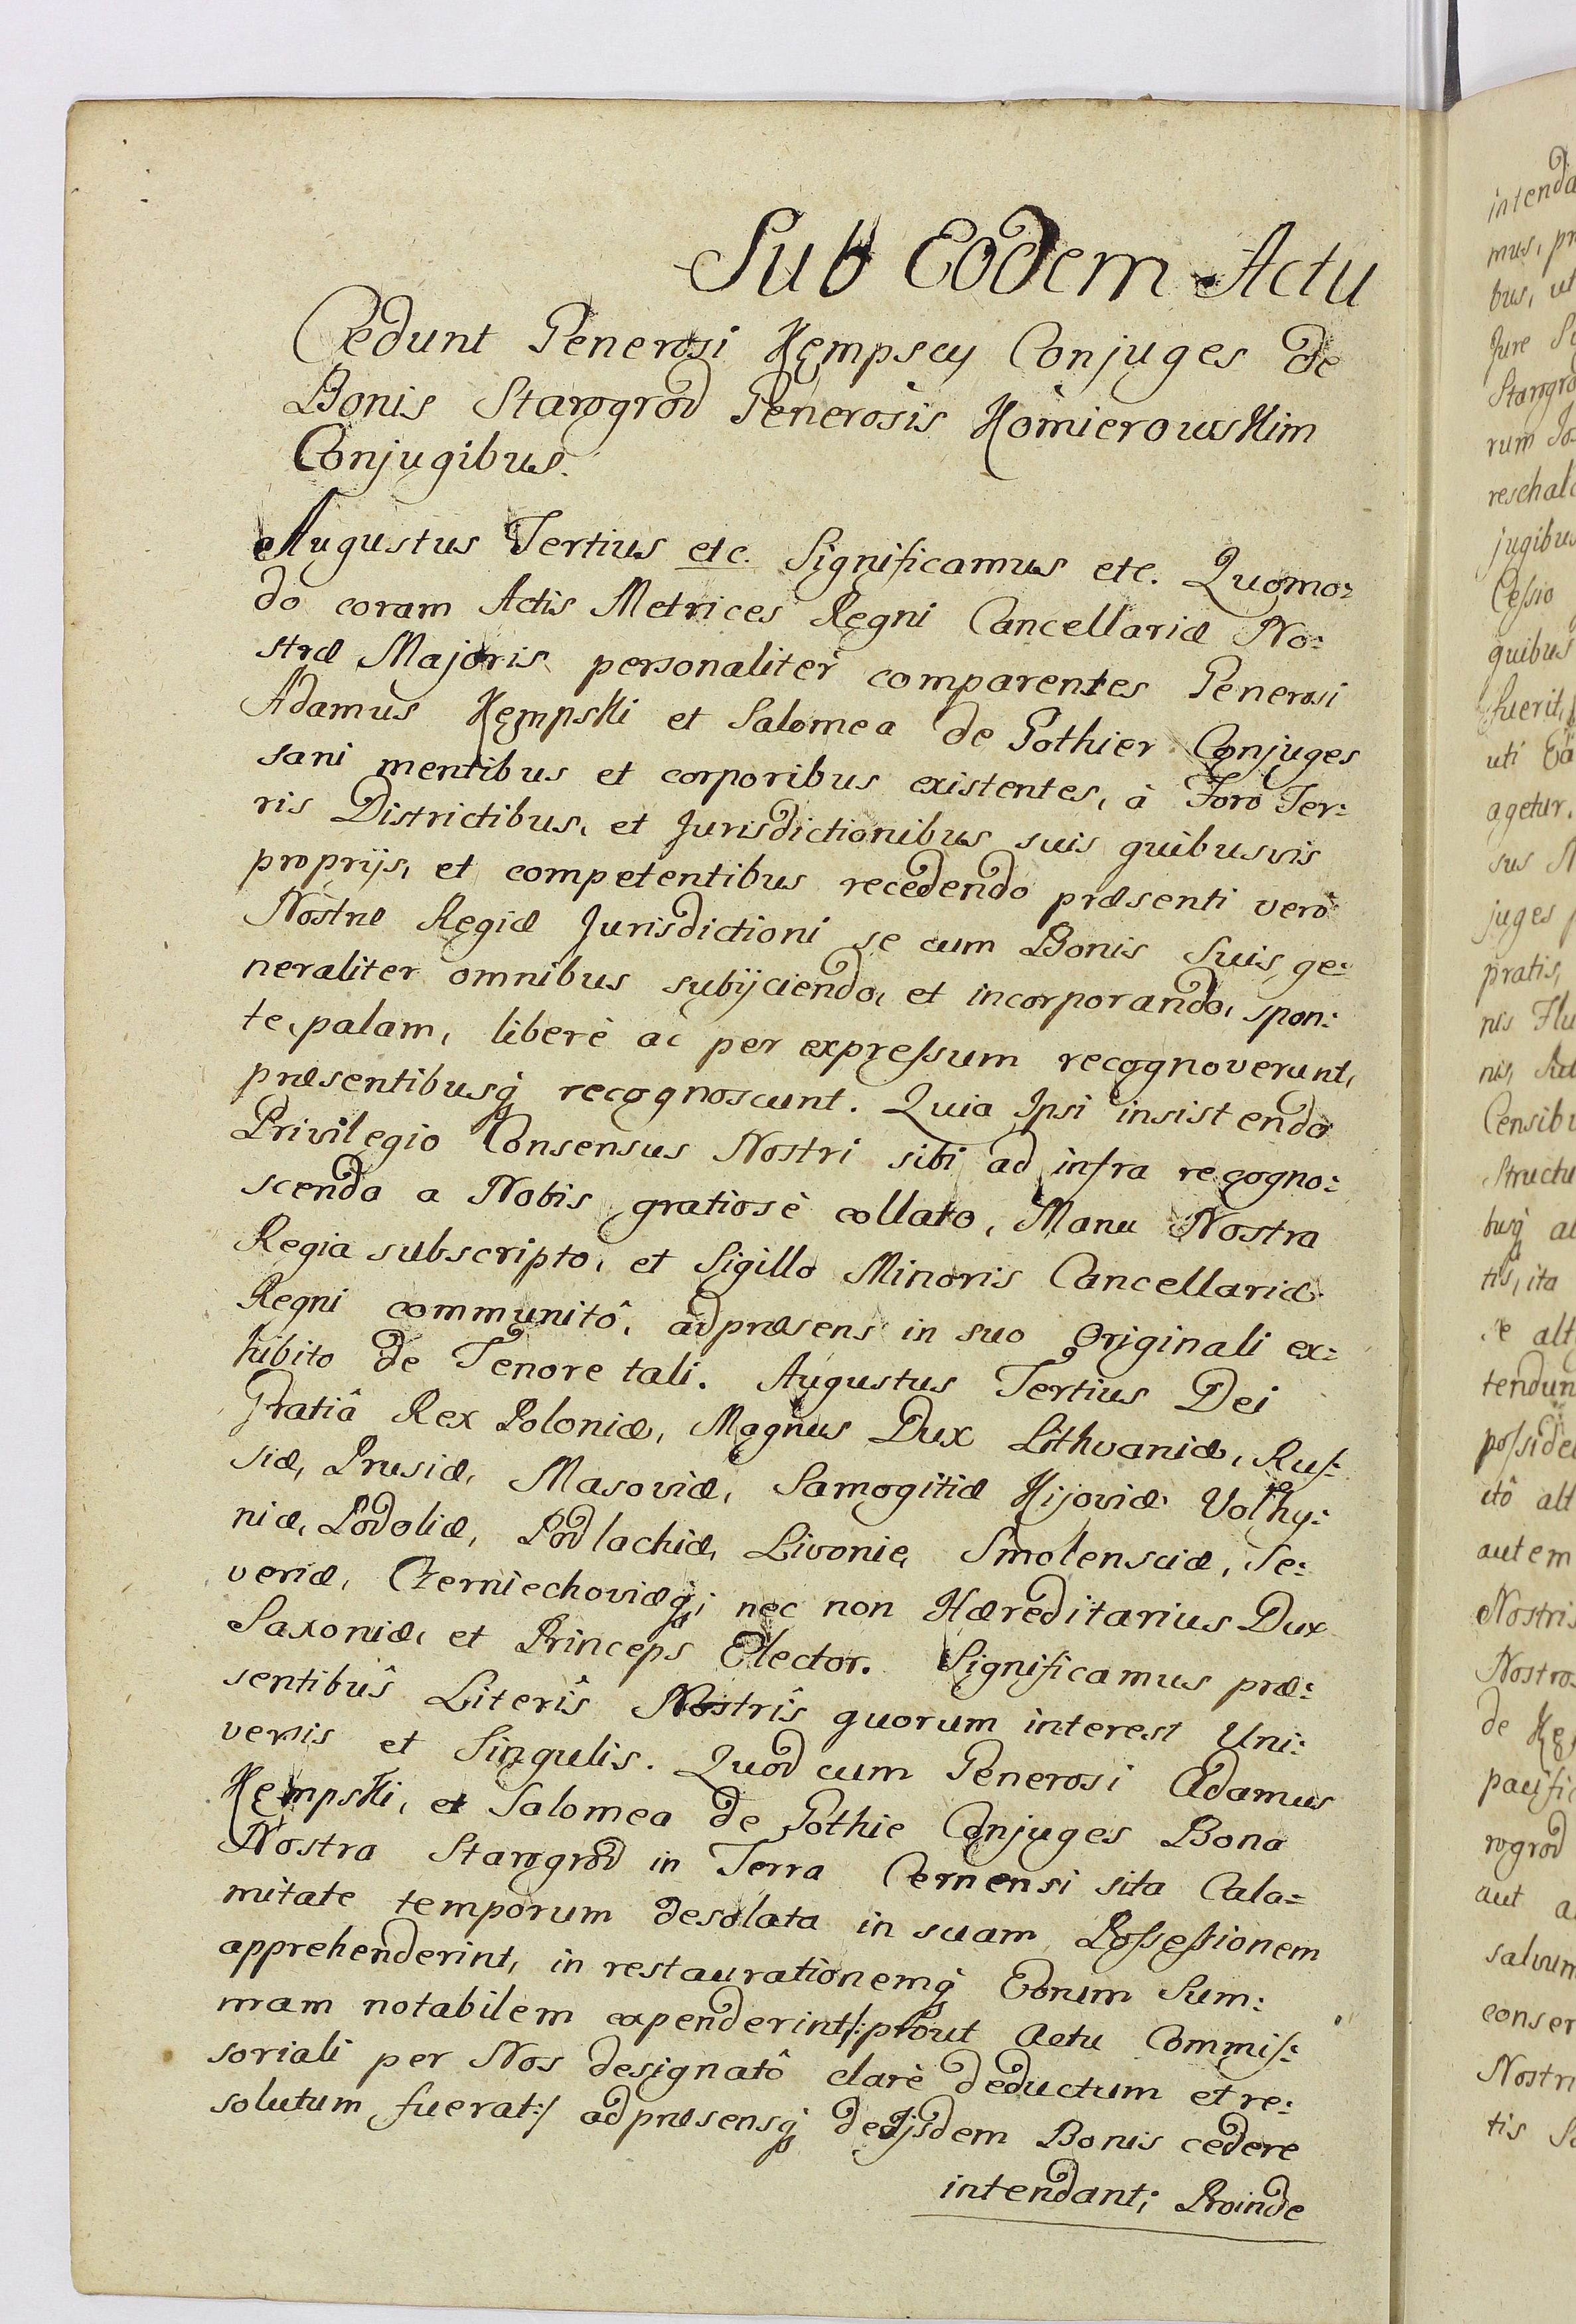 Sub Eodem Actu
Cedunt Generosi Kępscy Conjuges de
Bonis Starogrod Generosis Komierowskim
Conjugibus.
Augustus Tertius etc. Significamus etc. Quomo:
do coram Actis Metrices Regni Cancellariæ No:
stræ Majoris personaliter comparentes Generosi
Adamus Kęmpski et Salomea de Gothier Conjuges
sani mentibus et corporibus existentes, à Foro Ter:
ris Districtibus, et Jurisdictionibus suis quibusvis
proprijs, et competentibus recedendo præsenti verò
Nostræ Regiæ Jurisdictioni se cum Bonis Suis ge:
neraliter omnibus subijciendo, et incorporando, spon:
te, palam, liberè ac per expreſsum recognoverunt,
præsentibusq́ recognoscunt. Quia Ipsi insistendo
Privilegio Consensus Nostri sibi ad infra recogno:
scenda a Nobis gratiosè collato, Manu Nostra
Regia subscripto, et Sigillo Minoris Cancellariæ
Regni communitô, ad præsens in suo Originali ex:
hibito de Tenore tali. Augustus Tertius Dei
Gratiâ Rex Poloniæ, Magnus Dux Lithvaniæ, Ruſ:
siæ, Prusiæ, Masoviæ, Samogitiæ Kijoviæ Volhy:
niæ, Podoliæ, Podlachiæ, Livonię Smolensciæ, Se:
veriæ, Czerniechoviæq́; nec non Hæreditarius Dux
Saxoniæ, et Princeps Elector. Significamus præ:
sentibûs Literîs Nostrîs quorum interest Uni:
versis et Singulis. Quod cum Generosi Adamus
Kęmpski, et Salomea de Gothie Conjuges Bona
Nostra Starogrod in Terra Cernensi sita Cala=
mitate temporum desolata in suam Poſseſsionem
apprehenderint, in restaurationemq́ Eorum Sum:
mam notabilem expenderint /: prout Actu Commiſ:
soriali per Nos designatô clarè deductum et re:
solutum fuerat :/ ad præsensq́ de Ijsdem Bonis cedere
intendant; Proinde
intenda
mus, pr
bus, ut
Jure
Starogro
rum
reschal
jugibus
Ceſsio
quibus
fuerit,
uti
agetur.
sus
juges
pratis,
nis Flu
nis,
Censibu
Structu
busq́
tis, ita
alt
tendun
poſside
itô alt
autem
Nostris
Nostro
de Kę
pacifi
rogrod
aut a
salvum
conser
Nostr
tis